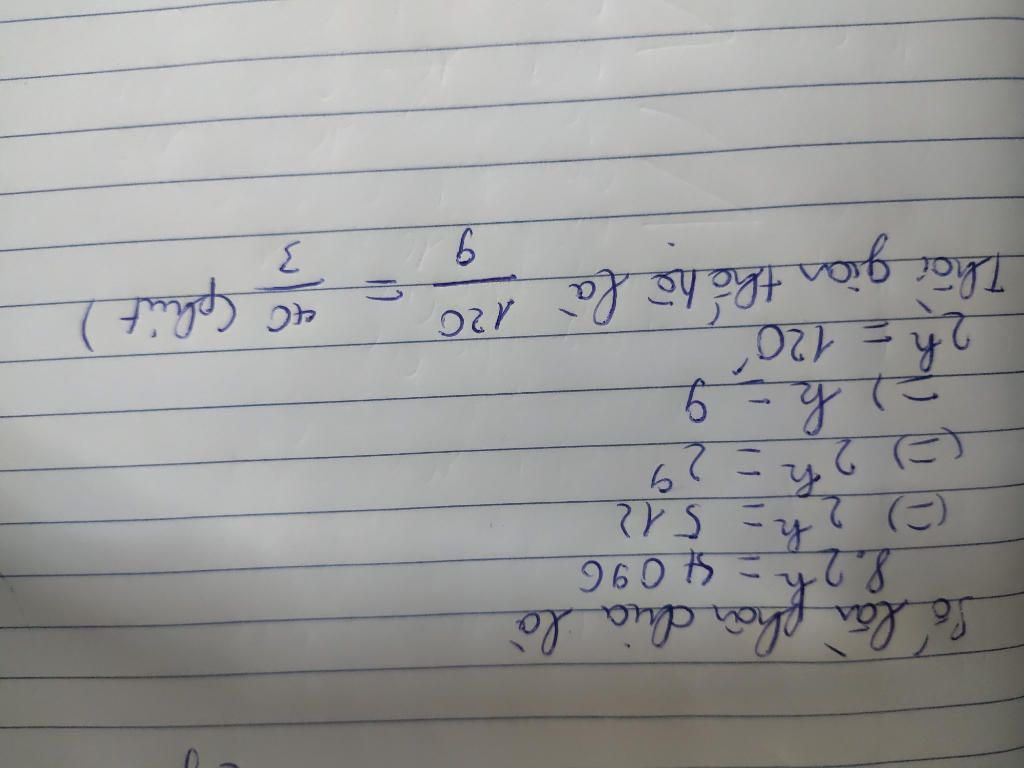 Số lần phân chia là
8.2^k = 4096
(=) 2^k = 512
(=) 2^k = 2^9
=) k = 9
2h = 120'
Thời gian thế hệ là : 120/9 = 40/3 (phút)